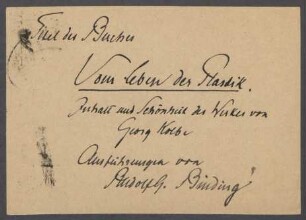 Titel des Buches
Vom Leben der Plastik.
Inhalt und Schönheit des Werkes von
Georg Kolbe
Ausführungen von
Rudolf G. Binding